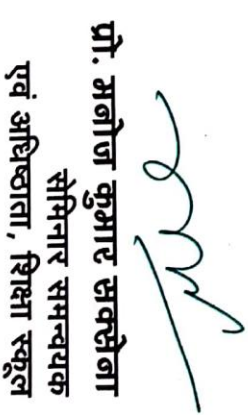 प्रो. मनोज कुमार सक्सेना
सेमिनार समन्वयक
एवं अधिष्ठाता, शिक्षा स्कूल